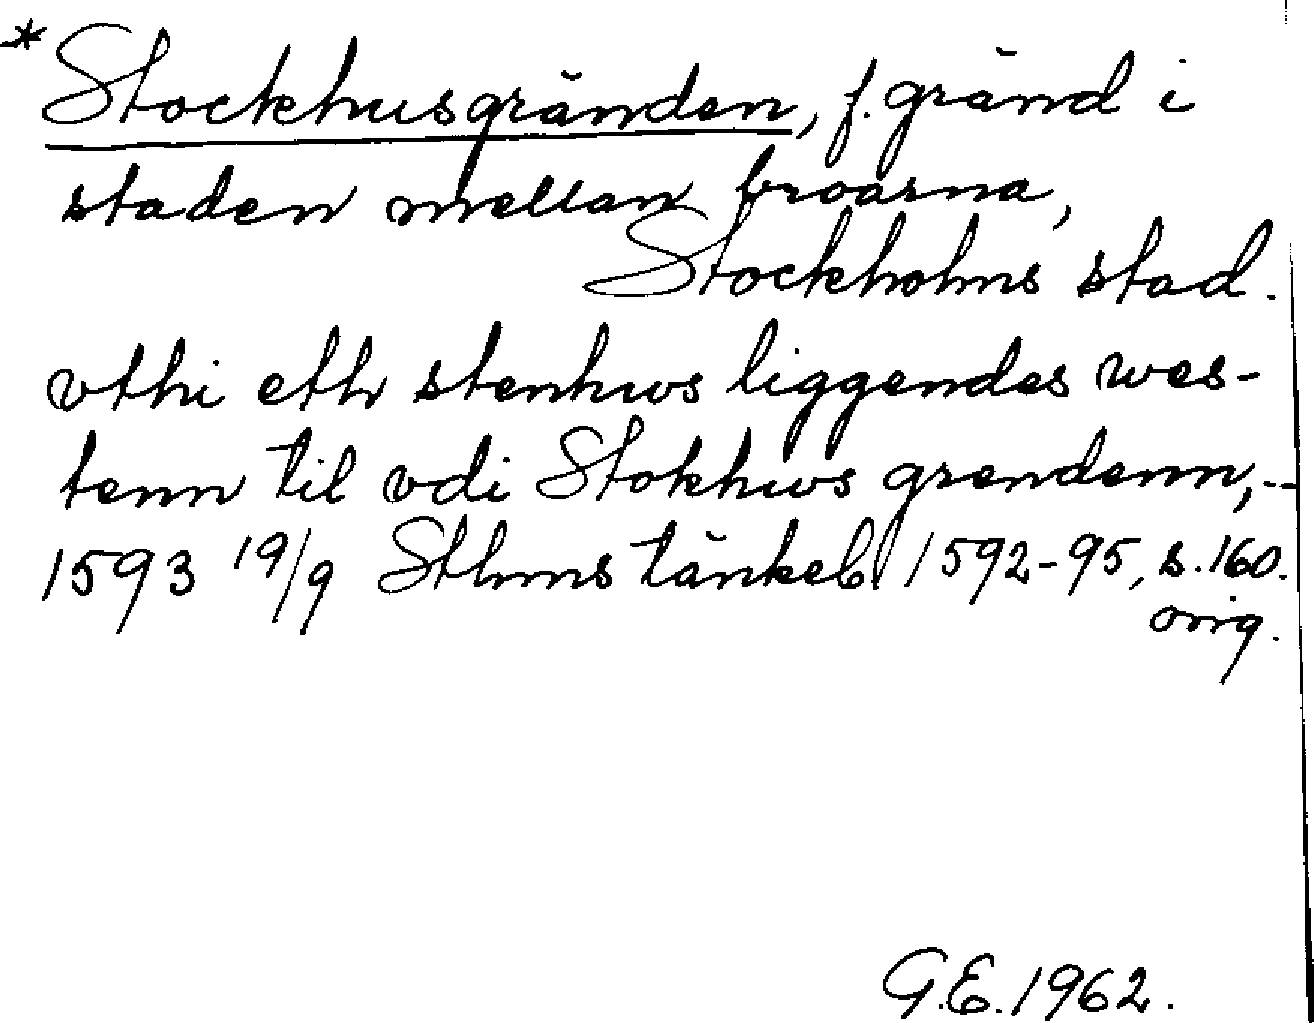 *Stockhusgränden, f. gränd i
staden mellan broarna,
Stockholms stad.
vthi eth stenhws liggendes wes-
tenn til vdi Stokhws grendenn,--
1593 19/9 Sthms tänkeb. 1592-95, s. 160.
orig.
G.E. 1962.